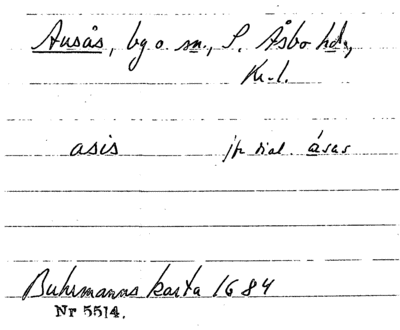 Ausås, by o. sn., S. Åsbo hd.,
Kr. l.
asis jfr dial. ásas
Buhrmanns karta 1684
Nr 5514.